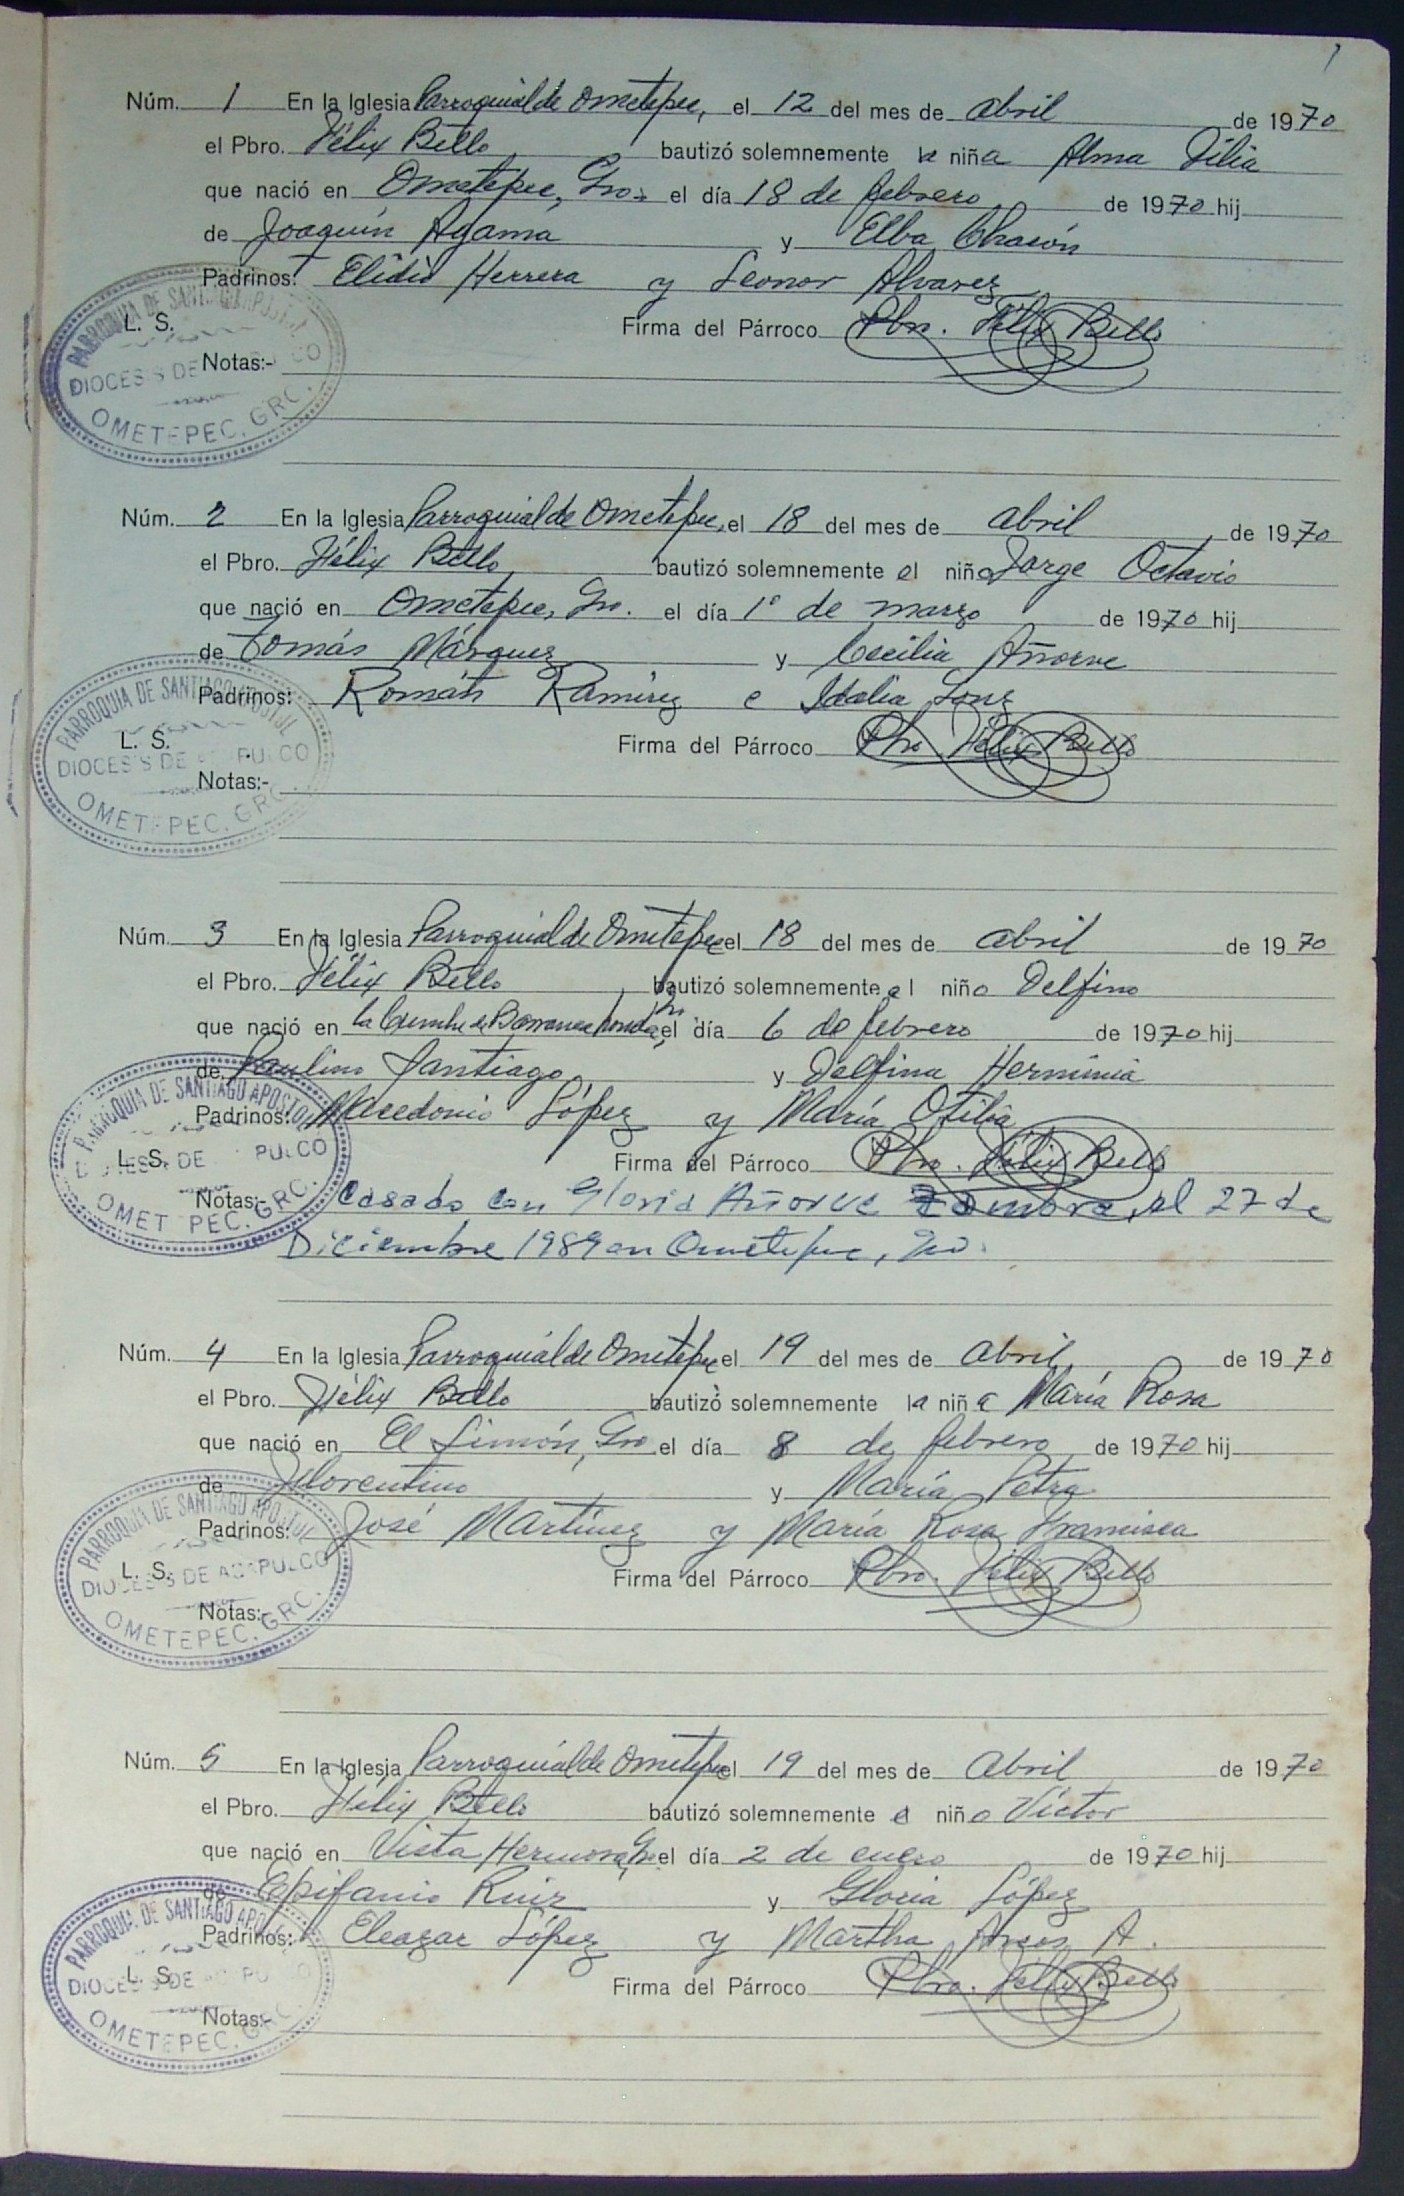 1
Núm. 1 En la Iglesia Parroquial de Ometepec, el 12 del mes de abril de 1970
el Pbro. Félix Bello bautizó solemnemente la niña Alma Idilia
que nació en Ometepec, Gro. el día 18 de febrero de 1970 hij
de Joaquín Agama y Elba Chacón
Padrinos: Elidio Herrera y Leonor Alvarez
L. S. Firma del Párroco Pbro. Félix Bello
Notas:-
PARROQUIA DE SANTIAGO APOSTOL
DIOCESIS DE ACAPULCO
OMETEPEC, GRO.
Núm. 2 En la Iglesia Parroquial de Ometepec, el 18 del mes de abril de 1970
el Pbro. Félix Bello bautizó solemnemente el niño Jorge Octavio
que nació en Ometepec, Gro. el día 1º de marzo de 1970 hij
de Tomás Márquez y Cecilia Añorve
Padrinos: Román Ramírez e Idalia
L. S. Firma del Párroco Pbro. Félix Bello
Notas:-
PARROQUIA DE SANTIAGO APOSTOL
DIOCESIS DE ACAPULCO
OMETEPEC, GRO.
Núm. 3 En la Iglesia Parroquial de Ometepec el 18 del mes de abril de 1970
el Pbro. Félix Bello bautizó solemnemente el niño Delfino
que nació en la Cumbre de Barranca honda, Gro. el día 6 de febrero de 1970 hij
de Paulino Santiago y Delfina Herminia
Padrinos: Macedonio López y María Otilia
L. S. Firma del Párroco Pbro. Félix Bello
Notas:- Casado con Gloria Añorve Zambra, el 27 de
Diciembre 1989 en Ometepec, Gro.
PARROQUIA DE SANTIAGO APOSTOL
DIOCESIS DE ACAPULCO
OMETEPEC, GRO.
Núm. 4 En la Iglesia Parroquial de Ometepec el 19 del mes de abril de 1970
el Pbro. Félix Bello bautizó solemnemente la niña María Rosa
que nació en El Limón, Gro el día 8 de febrero de 1970 hij
de Florentino y María Petra
Padrinos: José Martínez y María Rosa Francisca
L. S. Firma del Párroco Pbro. Félix Bello
Notas:-
PARROQUIA DE SANTIAGO APOSTOL
DIOCESIS DE ACAPULCO
OMETEPEC, GRO.
Núm. 5 En la Iglesia Parroquial de Ometepec el 19 del mes de abril de 1970
el Pbro. Félix Bello bautizó solemnemente el niño Víctor
que nació en Vista Hermosa, Gro. el día 2 de enero de 1970 hij
de Epifanio Ruiz y Gloria López
Padrinos: Eleazar López y Martha Arcos A.
L. S. Firma del Párroco Pbro. Félix Bello
Notas:-
PARROQUIA DE SANTIAGO APOSTOL
DIOCESIS DE ACAPULCO
OMETEPEC, GRO.